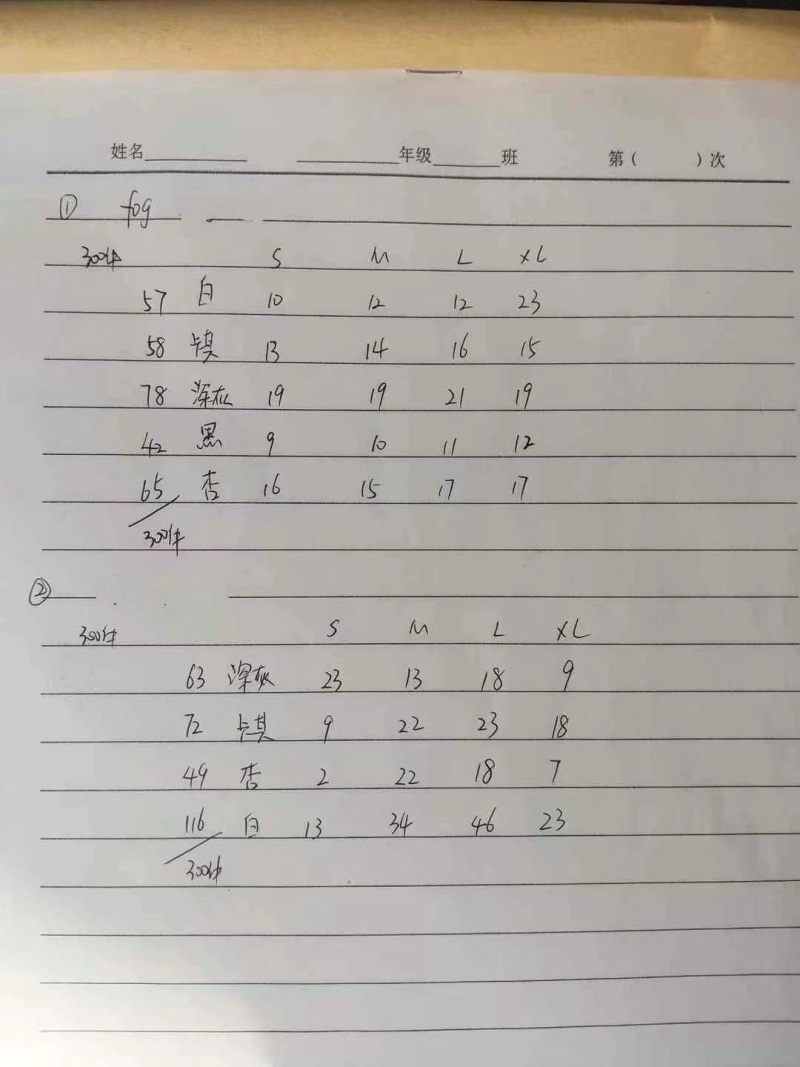 姓名 年级 班 第( )次
① fog
300件 S M L XL
57 白 10 12 12 23
58 卡其 13 14 16 15
78 深灰 19 19 21 19
42 黑 9 10 11 12
65 杏 16 15 17 17
300件
②
300件 S M L XL
63 深灰 23 13 18 9
72 卡其 9 22 23 18
49 杏 2 22 18 7
116 白 13 34 46 23
300件